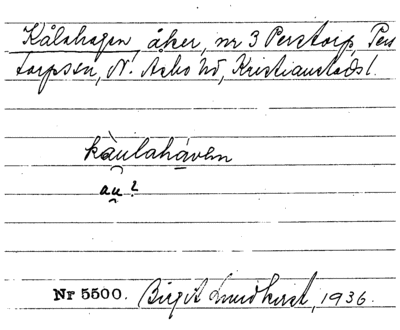 Kålahagen, åker, nr 3 Perstorp, Pers
torpssn, N. Åsbo hd, Kristianstads l.
kàulahávɘn
au?
Nr 5500. Birgit Lundkvist, 1936.